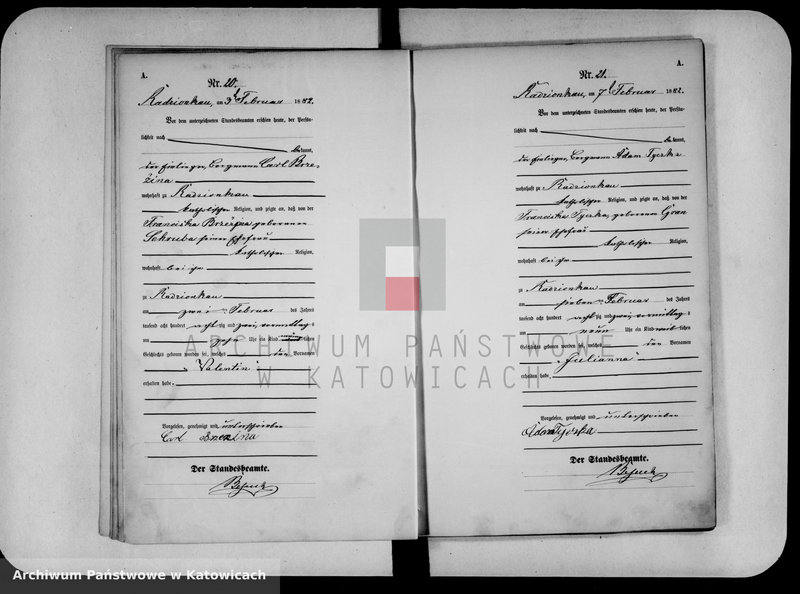 A.
Nr. 20.
Radzionkau, am 3t Februar 1882.
Vor dem unterzeichneten Standesbeamten erschien heute, der Persön-
lichkeit nach
kannt,
der Bergmann Carl Brze-
zina
wohnhaft zu Radzionkau
katholischer Religion, und zeigte an, daß von der
Franciska geborenen
seiner Ehefrau
katholischer Religion,
wohnhaft bei ihm
zu Radzionkau
am zwei ten Februar des Jahres
tausend acht hundert acht zig und zwei, vormittag s
um zehn Uhr ein Kind männlichen
Geschlechts geboren worden sei, welches den Vornamen
Valentin
erhalten habe.
Vorgelesen, genehmigt und unterschrieben
Carl Brzezina
Der Standesbeamte.
A.
Nr. 21.
Radzionkau, am 7t Februar 1882.
Vor dem unterzeichneten Standesbeamten erschien heute, der Persön-
lichkeit nach
kannt,
der Bergmann Adam Tyrska
wohnhaft zu Radzionkau
katholischer Religion, und zeigte an, daß von der
Franciska geborenen
seiner Ehefrau
katholischer Religion,
wohnhaft bei ihm
zu Radzionkau
am sieben ten Februar des Jahres
tausend acht hundert acht zig und zwei, vormittag s
um neun Uhr ein Kind weiblichen
Geschlechts geboren worden sei, welches den Vornamen
Julianna
erhalten habe.
Vorgelesen, genehmigt und unterschrieben
Adam
Der Standesbeamte.
ARCHIWUM PAŃSTWOWE
W KATOWICACH
Archiwum Państwowe w Katowicach